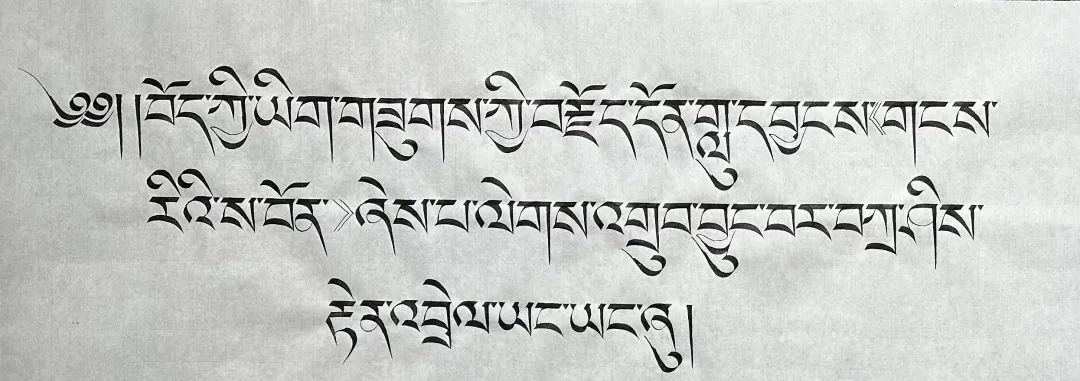 ༄༅། །བོད་ཀྱི་ཡིག་གཟུགས་ཀྱི་བརྗོད་དོན་གླུ་དབྱངས《གངས་
རིའི་ས་བོན་》ཞེས་པ་ལེགས་འགྲུབ་བྱུང་བར་བཀྲ་ཤིས་
རྟེན་འབྲེལ་ཡང་ཡང་ཞུ།